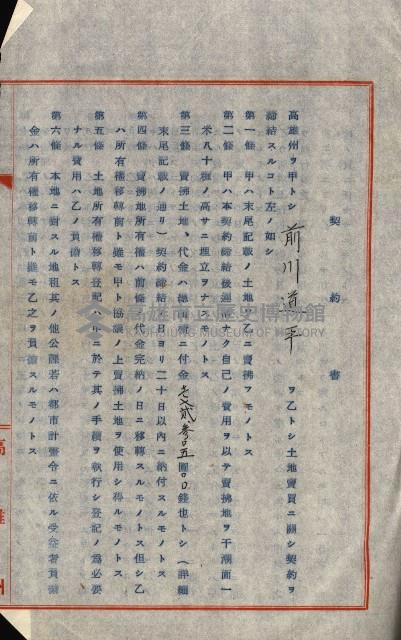 契約書
高雄州ヲ甲トシ前川道平ヲ乙トシ土地賣買ニ關シ契約ヲ
締結スルコト左ノ如シ
第一條 甲ハ末尾記載ノ土地ヲ乙ニ賣拂フモノトス
第二條 甲ハ本契約締結後遲滯ナク自己ノ費用ヲ以テ賣拂地ヲ干潮面一
米八十糎ノ高サニ埋立ヲナスモノトス
第三條 賣拂土地ノ代金ハ
圓
錢也トシ(詳細
末尾記載ノ通リ)契約締結ノ日ヨリ二十日以內ニ納付スルモノトス
第四條 賣拂地所有權ハ前條ノ代金完納ノ日ニ移轉スルモノトス但シ乙
ハ所有權移轉前ト雖モ甲ト協議ノ上賣拂土地ヲ使用シ得ルモノトス
第五條 土地所有權移轉登記ハ甲ニ於テ其ノ手續ヲ執行シ登記ノ爲必要
ナル費用ハ乙ノ負擔トス
第六條 本地ニ對スル地租其ノ他公課若ハ都市計畫令ニ依ル受益者負擔
金ハ所有權移轉前ト雖モ乙之ヲ負擔スルモノトス
高雄州
高雄市立歷史博物館